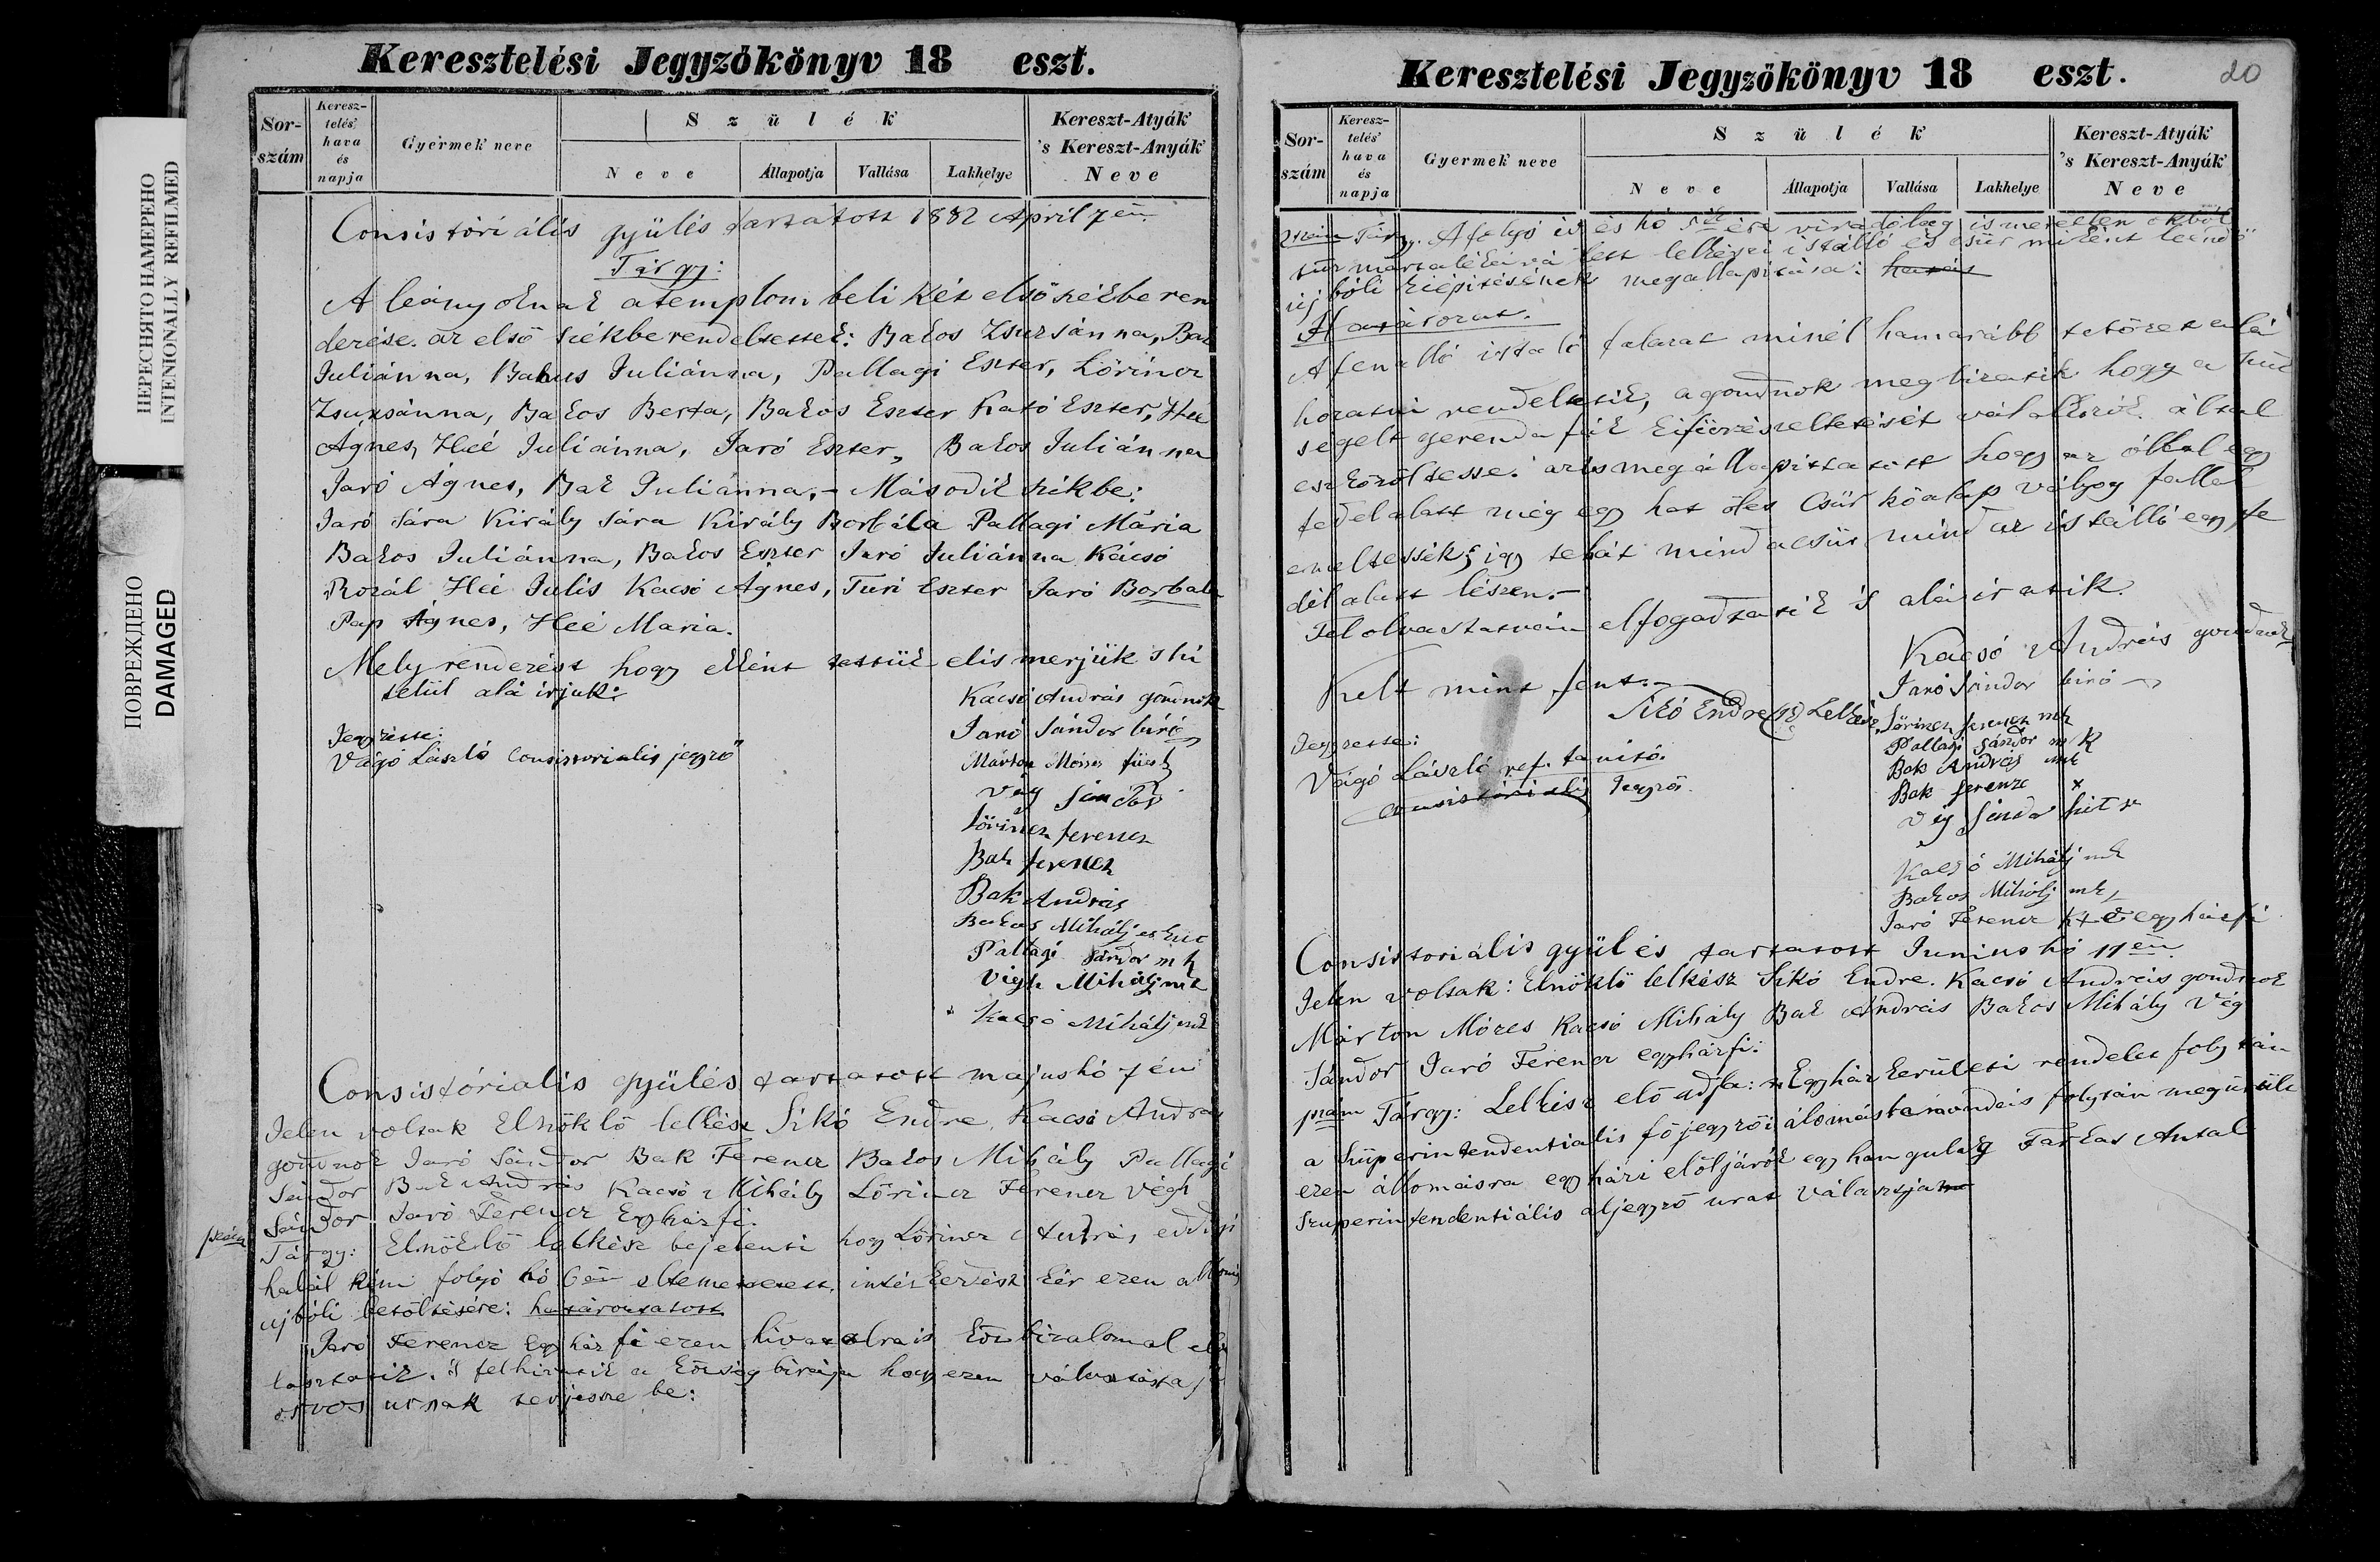 ПЕРЕСНЯТО НАМЕРЕНО
INTENIONALLY REFILMED
ПОВРЕЖДЕНО
DAMAGED
Keresztelési Jegyzökönyv 18 eszt.
Sor-szám
Keresz-telés' hava és napja
Gyermek neve
Szülék
Neve
Állapotja
Vallása
Lakhelye
Kereszt-Atyák 's Kereszt-Anyák Neve
Consistóriális gyülés tartatott 1882 April 7én
Tárgy:
A leányoknak a templom beli két első székbe ren
dezése. az első székbe rendeltettek: Bakos Zsuzsánna, Bak
Juliánna, Bakos Juliánna, Pallagi Eszter, Lörincz
Zsuzsánna, Bakos Berta, Bakos Eszter Kató Eszter, Héé
Ágnes, Héé Juliánna, Jaró Eszter, Bakos Juliánna
Jaró Ágnes, Bak Juliánna,- Második székbe:
Jaró Sára Király Sára Király Borbála Pallagi Mária
Bakos Juliánna, Bakos Eszter Jaró Juliánna Kácsó
Rozál Héé Julis Kacsó Ágnes, Turi Eszter Jaró Borbála
Pap Ágnes, Héé Maria.
Mely rendezést hogy ekként tettük elismerjük 's hi
telül alá irjuk:
Kacsó András gondnok
Jaró Sándor biró
Jegyzette:
Vágó László Consistorialis jegyző
Márton Mózes
Vég Sándor
Lörincz Ferencz
Bak Ferencz
Bak András
Bakos Mihálj
Pallagi Sándor mk
Vigh Mihálj mk
Kacsó Mihálj mk
Consistórialis gyülés tartatott majus hó 7én
Jelen voltak Elnöklő lelkész Sikó Endre, Kacsó András
gondnok Jaró Sándor Bak Ferencz Bakos Mihály Pallagi
Sándor Bak András Kacsó Mihály Lörincz Ferencz Végh
Sándor Jaró Ferencz Egyházfi.
Tárgy: Elnöklő lelkész bejelenti hogy Lörincz
halál kém folyó hó 6án eltemettetett, intézkedést kér ezen
ujbóli betöltésére: határoztatott
Jaró Ferencz Egyházfi ezen hivatalra is köz bizalommal
lasztatik. 's felhivatik a község birája hogy ezen választást
orvos urnak terjessze be:
Keresztelési Jegyzökönyv 18 eszt.
20
Sor-szám
Keresz-telés' hava és napja
Gyermek neve
Szülék
Neve
Állapotja
Vallása
Lakhelye
Kereszt-Atyák 's Kereszt-Anyák Neve
Tárgy. A folyó év és hó viradólag ismeretlen okból
tűz martalékává lett lelkészi istálló és csür miként leendő
ujbóli kiépitésének megallapitása:
Határozat.
A fenálló istaló falazat minél hamarább tetőzet alá
hozatni rendeltetik, a gondnok megbizatik hogy a
segelt gerenda fák kifürészeltetését vállalkozók által
eszközöltesse. az is megállapittatott hogy az óllal egy
fedél alatt még egy hat öles Csür kőalap vályog fallal
emeltessék; igy tehát mind a csür mind az istálló egy fe
dél alatt lészen.-
Felolvastatván elfogadtatik 's aláiratik.
Kelt mint fent.-
Kacsó András gondnok
Jaró Sándor biró
Sikó Endre Lelkész
Lörincz Ferencz mk
Jegyzette:
Pallagi Sándor mk
Vágó László ref. tanitó.
Bak András mk
consistóriális Jegyző.
Bak Ferencz x
Vég Sándor
Kacsó Mihálj mk
Bakos Mihálj mk
Jaró Ferencz egyházfi
Consistoriális gyülés tartatott Junius hó 11én
Jelen voltak: Elnöklő lelkész Sikó Endre. Kacsó András gondnok
Márton Mózes Kacsó Mihály Bak András Bakos Mihály Vég
Sándor Jaró Ferencz egyházfi:
Tárgy: Lelkész elő adja: Egyház kerületi rendelet folytán
a Superintendentialis fő jegyzői álomás lemondás folytán megürült
ezen állomásra egyházi elöljárók egyhangulag Farkas Antal
Szuperintendentiális aljegyző urat választja